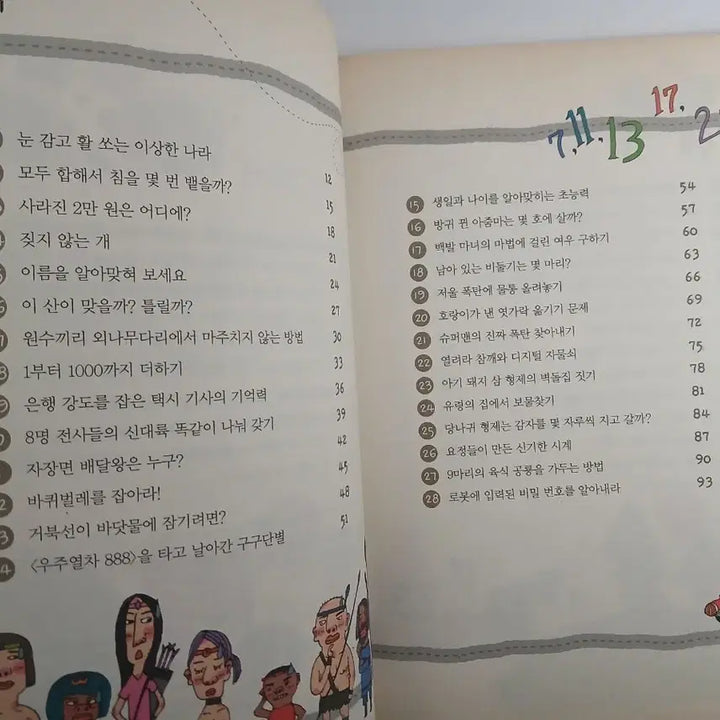 눈 감고 활 쏘는 이상한 나라 12
모두 합해서 침을 몇 번 뱉을까? 15
사라진 2만 원은 어디에? 18
짖지 않는 개 21
이름을 알아맞혀 보세요 24
이 산이 맞을까? 틀릴까? 27
원수끼리 외나무다리에서 마주치지 않는 방법 30
1부터 1000까지 더하기 33
은행 강도를 잡은 택시 기사의 기억력 36
8명 전사들의 신대륙 똑같이 나눠 갖기 39
자장면 배달왕은 누구? 42
바퀴벌레를 잡아라! 45
거북선이 바닷물에 잠기려면? 48
〈우주열차 888〉을 타고 날아간 구구단별 51
7, 11, 13 17,
15 생일과 나이를 알아맞히는 초능력 54
16 방귀 뀐 아줌마는 몇 호에 살까? 57
17 백발 마녀의 마법에 걸린 여우 구하기 60
18 남아 있는 비둘기는 몇 마리? 63
19 저울 폭탄에 물통 올려놓기 66
20 호랑이가 낸 엿가락 옮기기 문제 69
21 슈퍼맨의 진짜 폭탄 찾아내기 72
22 열려라 참깨와 디지털 자물쇠 75
23 아기 돼지 삼 형제의 벽돌집 짓기 78
24 유령의 집에서 보물찾기 81
25 당나귀 형제는 감자를 몇 자루씩 지고 갈까? 84
26 요정들이 만든 신기한 시계 87
27 9마리의 육식 공룡을 가두는 방법 90
28 로봇에 입력된 비밀 번호를 알아내라 93